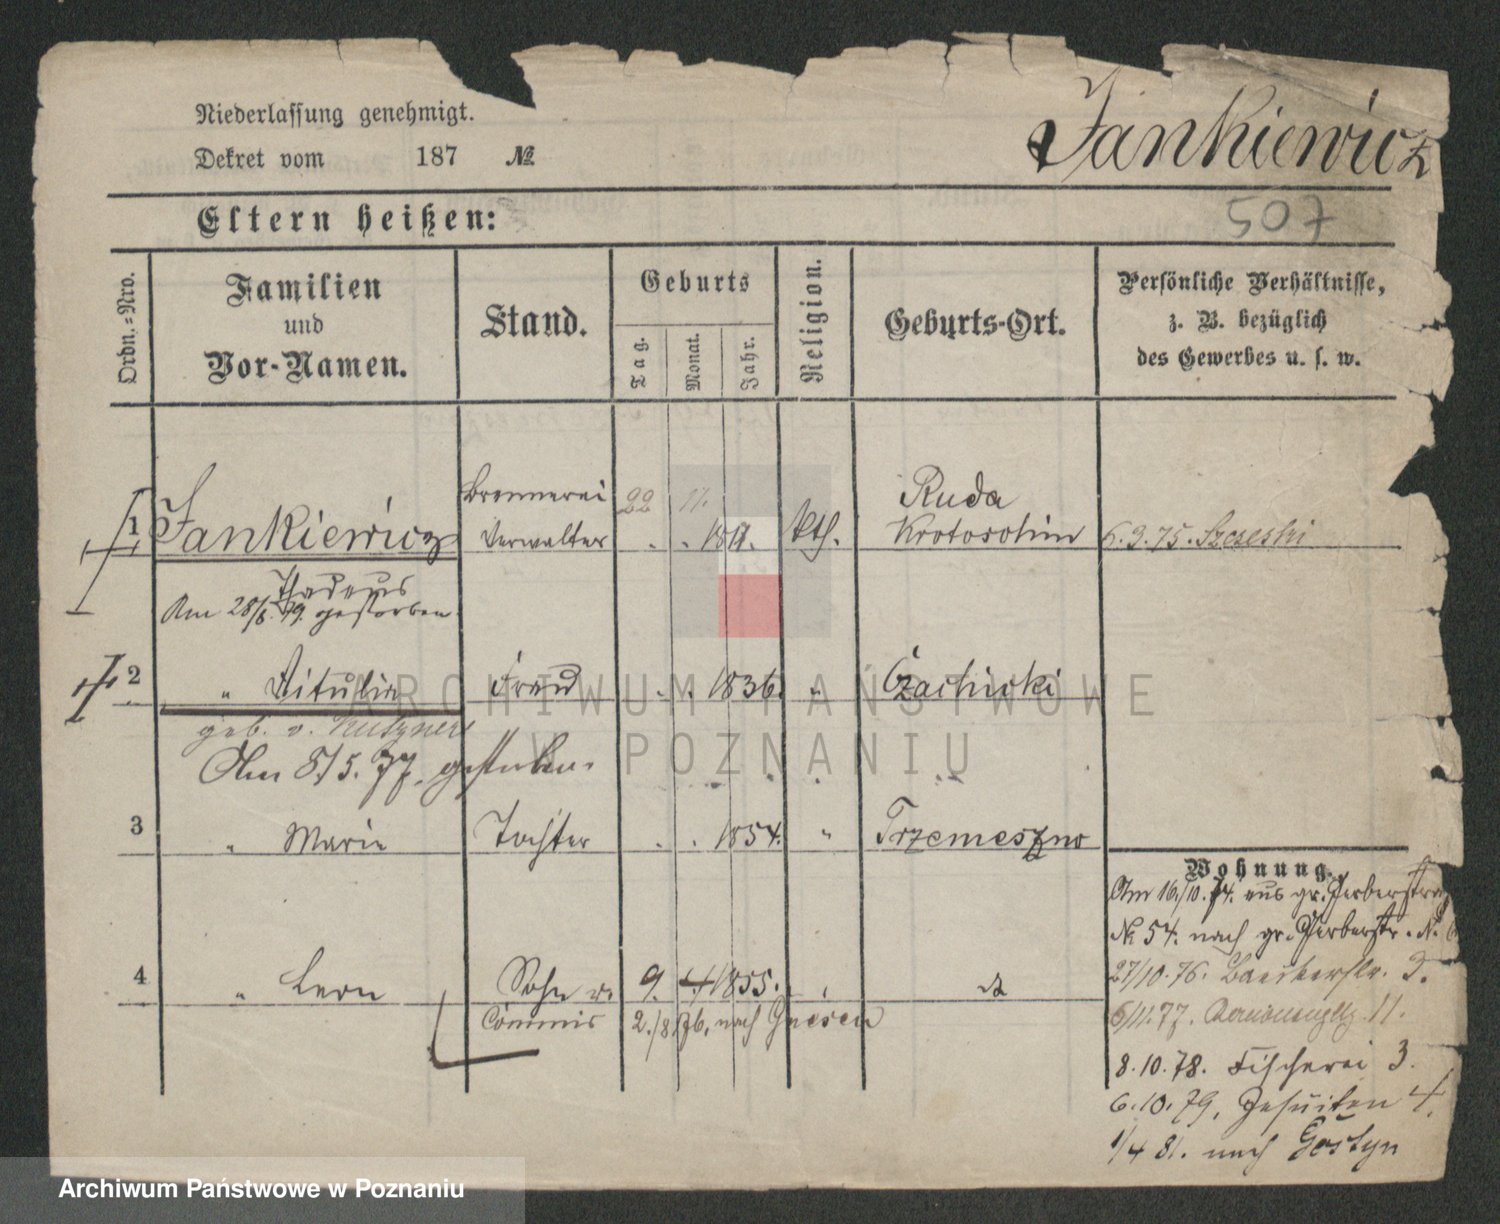 Niederlassung genehmigt.
Jankiewicz
Dekret vom 187 №
507
Eltern heißen:
Ordn.-Nro.
Familien
und
Vor-Namen.
Stand.
Geburts
Tag.
Monat.
Jahr.
Religion.
Geburts-Ort.
Persönliche Verhältnisse,
z. B. bezüglich
des Gewerbes u. s. w.
Brennerei 22 11. Ruda
1 Jankiewicz Verwalter . . kth. Krotoschin 6.9.75.
Thadeus
Am 28/8. 79. gestorben
2 " Vitulia Frau . . 1836. "
geb. v.
Am 8/5. 77. gestorben.
3 " Marie Tochter . . 1854. " Trzemeszno
Wohnung.
Am 16./10. 74. aus gr. Gerberstraße
№ 54. nach gr. Gerberstr. №
4 " Leon Sohn 9. 4 1855.
27/10. 76. 9.
Commis 2./8. 76. nach Gnesen
6/11. 77. 11.
8.10.78. Fischerei 3.
6.10.79. Jesuiten 4.
1/4 81. nach Gostyn
ARCHIWUM PAŃSTWOWE
W POZNANIU
Archiwum Państwowe w Poznaniu